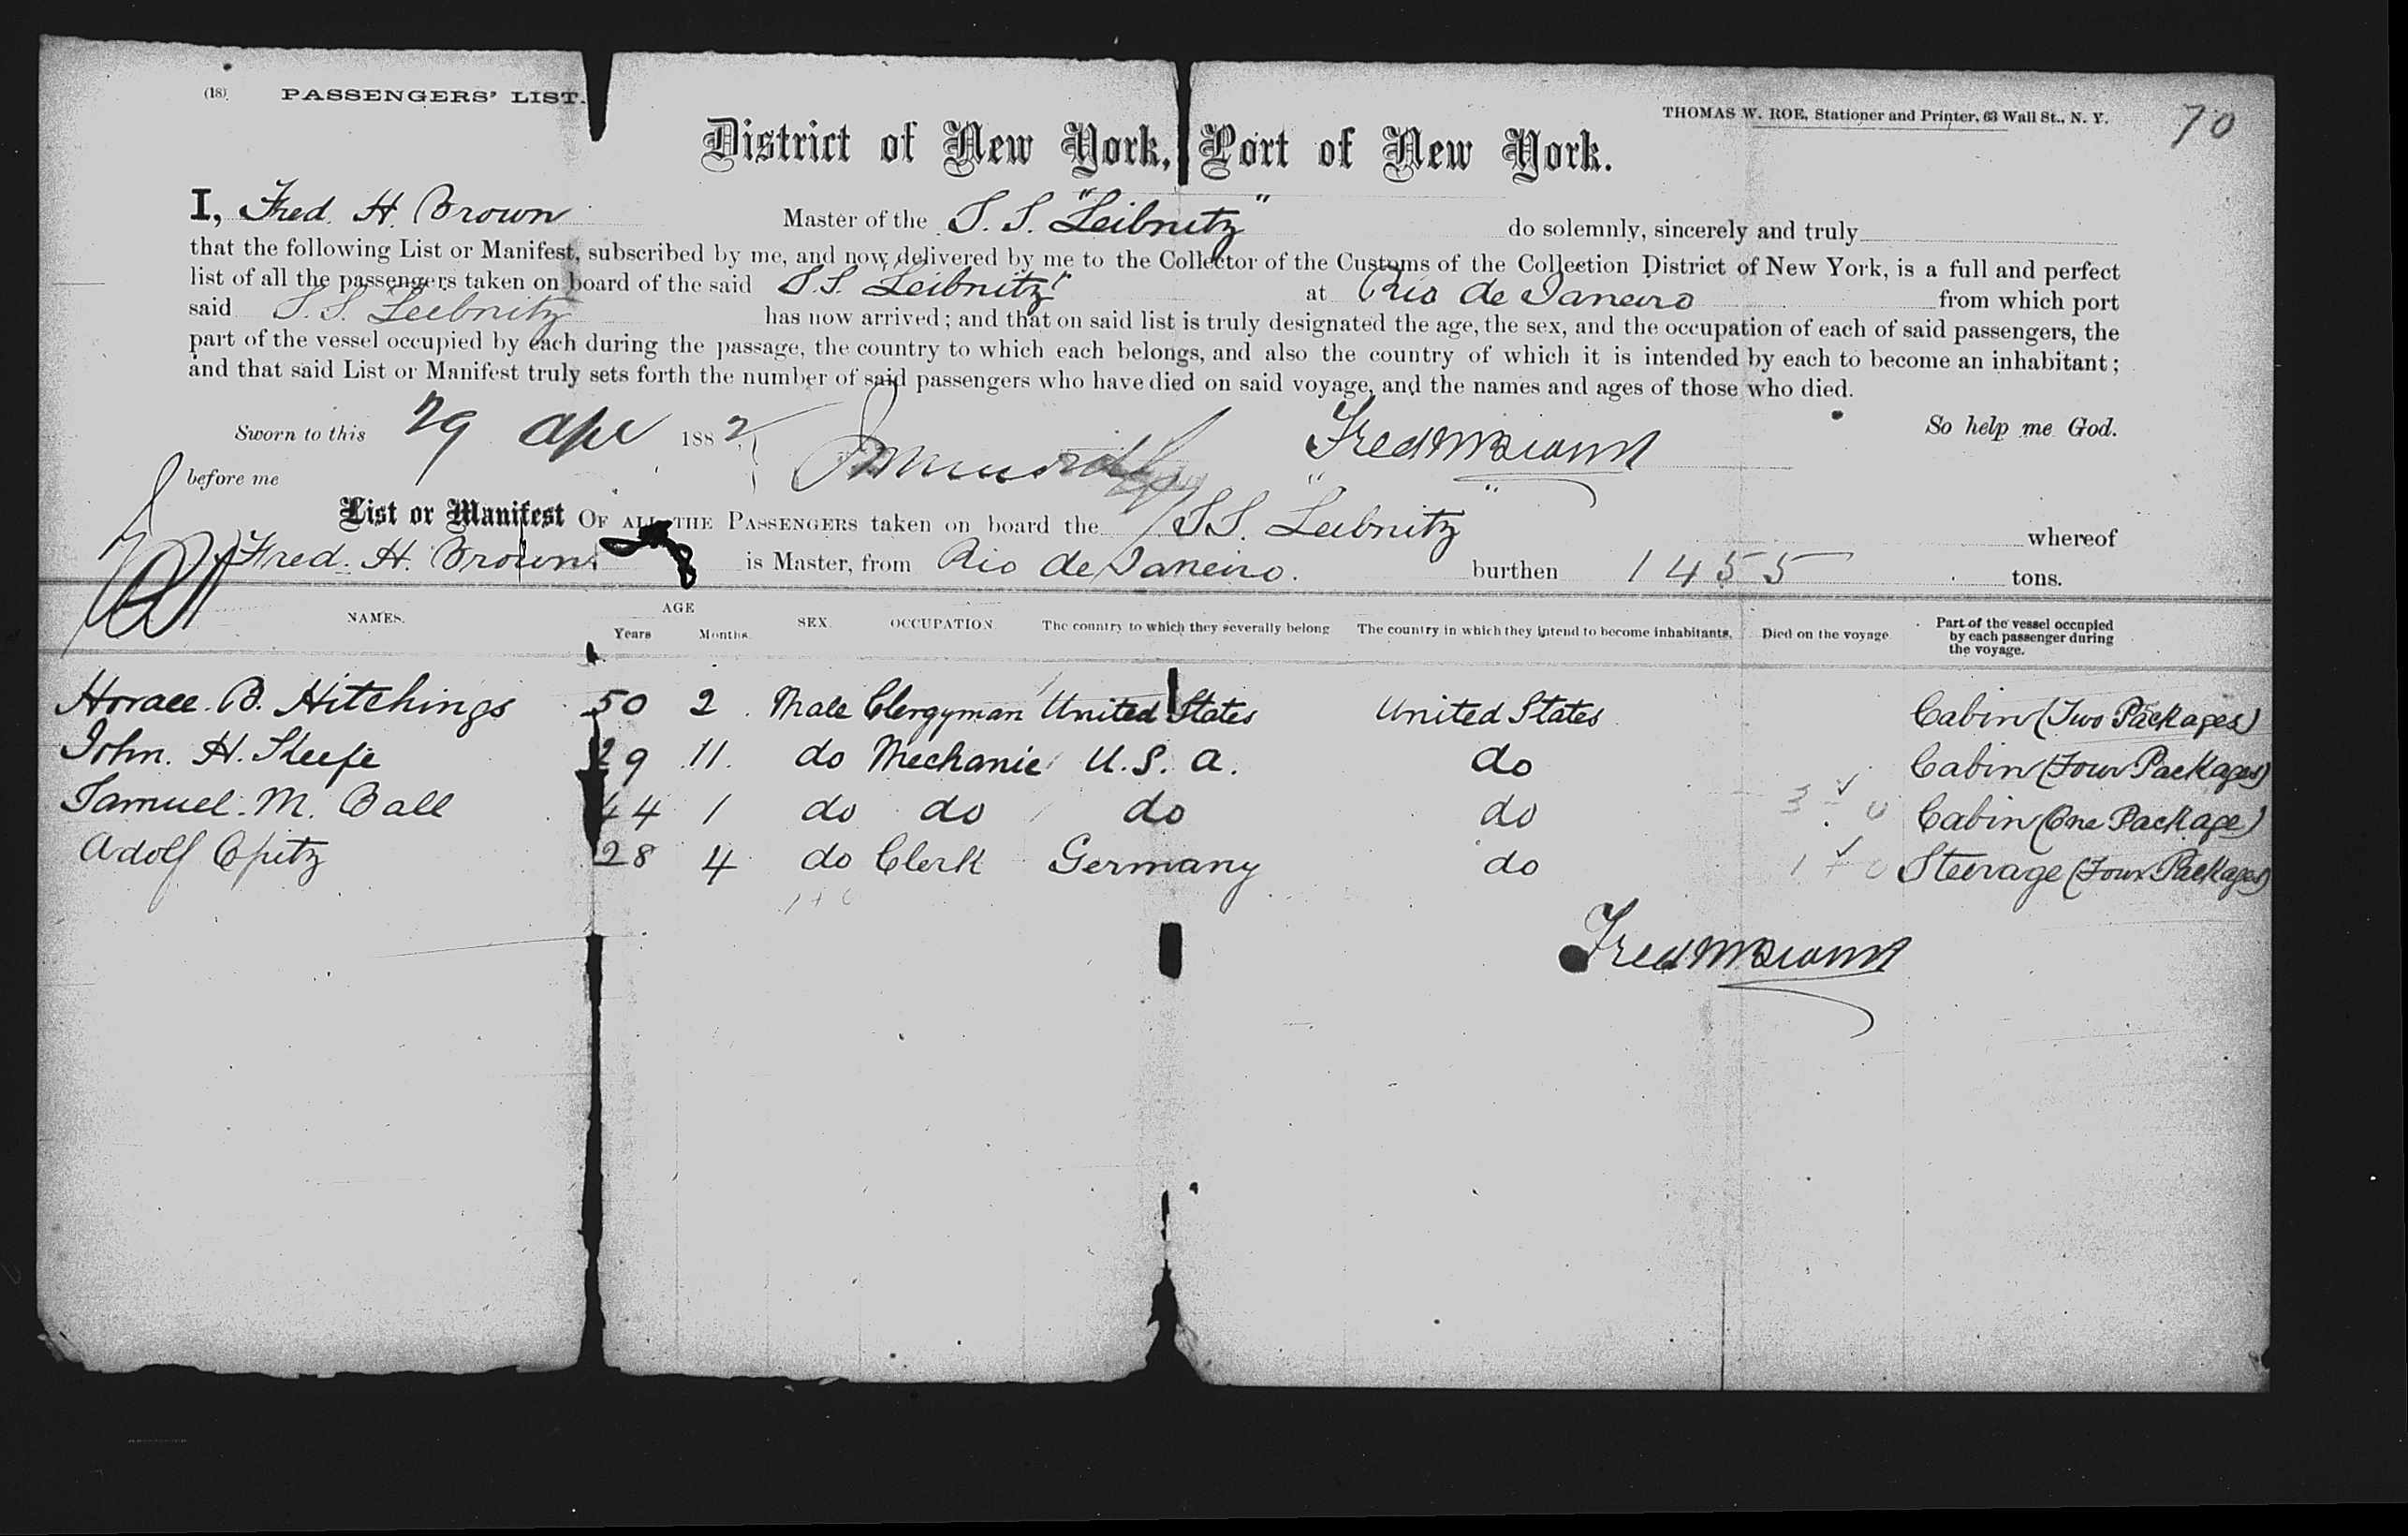 (18) PASSENGERS' LIST.
THOMAS W. ROE, Stationer and Printer, 63 Wall St., N. Y.
70
District of New York, Port of New York.
I, Fred. H. Brown Master of the S. S. "Leibnitz" do solemnly, sincerely and truly
that the following List or Manifest, subscribed by me, and now delivered by me to the Collector of the Customs of the Collection District of New York, is a full and perfect
list of all the passengers taken on board of the said S.S. "Leibnitz" at Rio de Janeiro from which port
said S. S. Leibnitz has now arrived; and that on said list is truly designated the age, the sex, and the occupation of each of said passengers, the
part of the vessel occupied by each during the passage, the country to which each belongs, and also the country of which it is intended by each to become an inhabitant;
and that said List or Manifest truly sets forth the number of said passengers who have died on said voyage, and the names and ages of those who died.
So help me God.
Sworn to this 29 Apl 1882
before me
List or Manifest OF ALL THE PASSENGERS taken on board the S.S. "Leibnitz" whereof
Fred. H. Brown. is Master, from Rio de Janeiro. burthen 1455 tons.
NAMES. AGE Years Months. SEX. OCCUPATION. The country to which they severally belong The country in which they intend to become inhabitants. Died on the voyage Part of the vessel occupied by each passenger during the voyage.
Horace. B. Hitchings 50 2 Male Clergyman United States United States Cabin (Two Packages)
John. H. 29 11. do Mechanic U. S. A. do Cabin (Four Packages)
Samuel. M. Ball 44 1 do do do do Cabin (One Package)
Adolf Opitz 28 4 do Clerk Germany do Steerage (Four Packages)